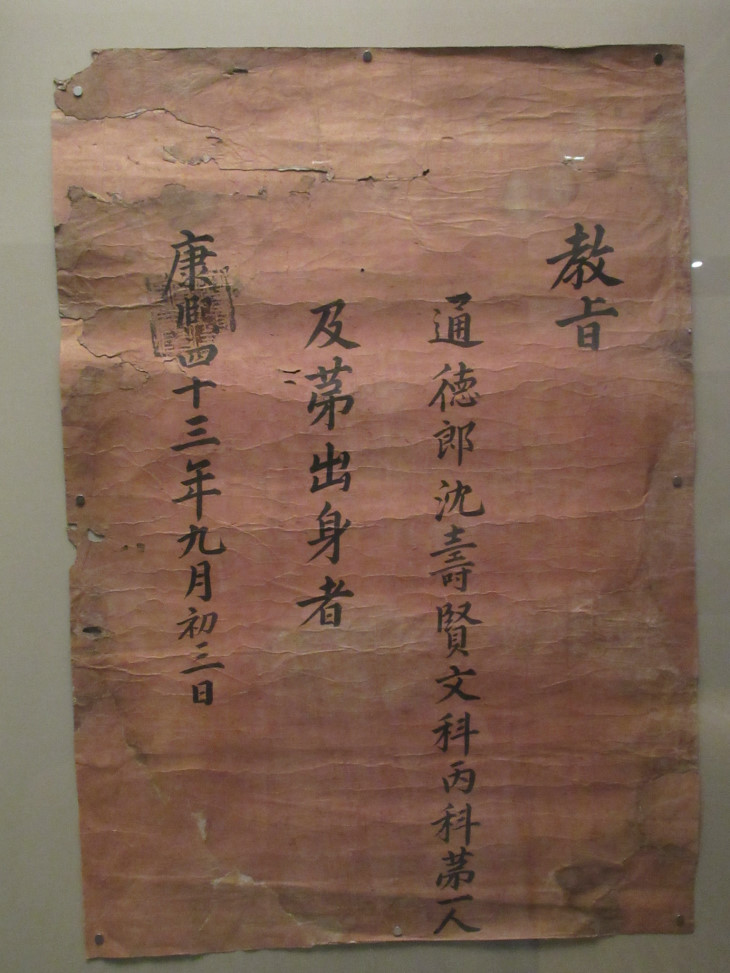 教旨
通德郎沈壽賢文科丙科第一人
及第出身者
康熙四十三年九月初三日